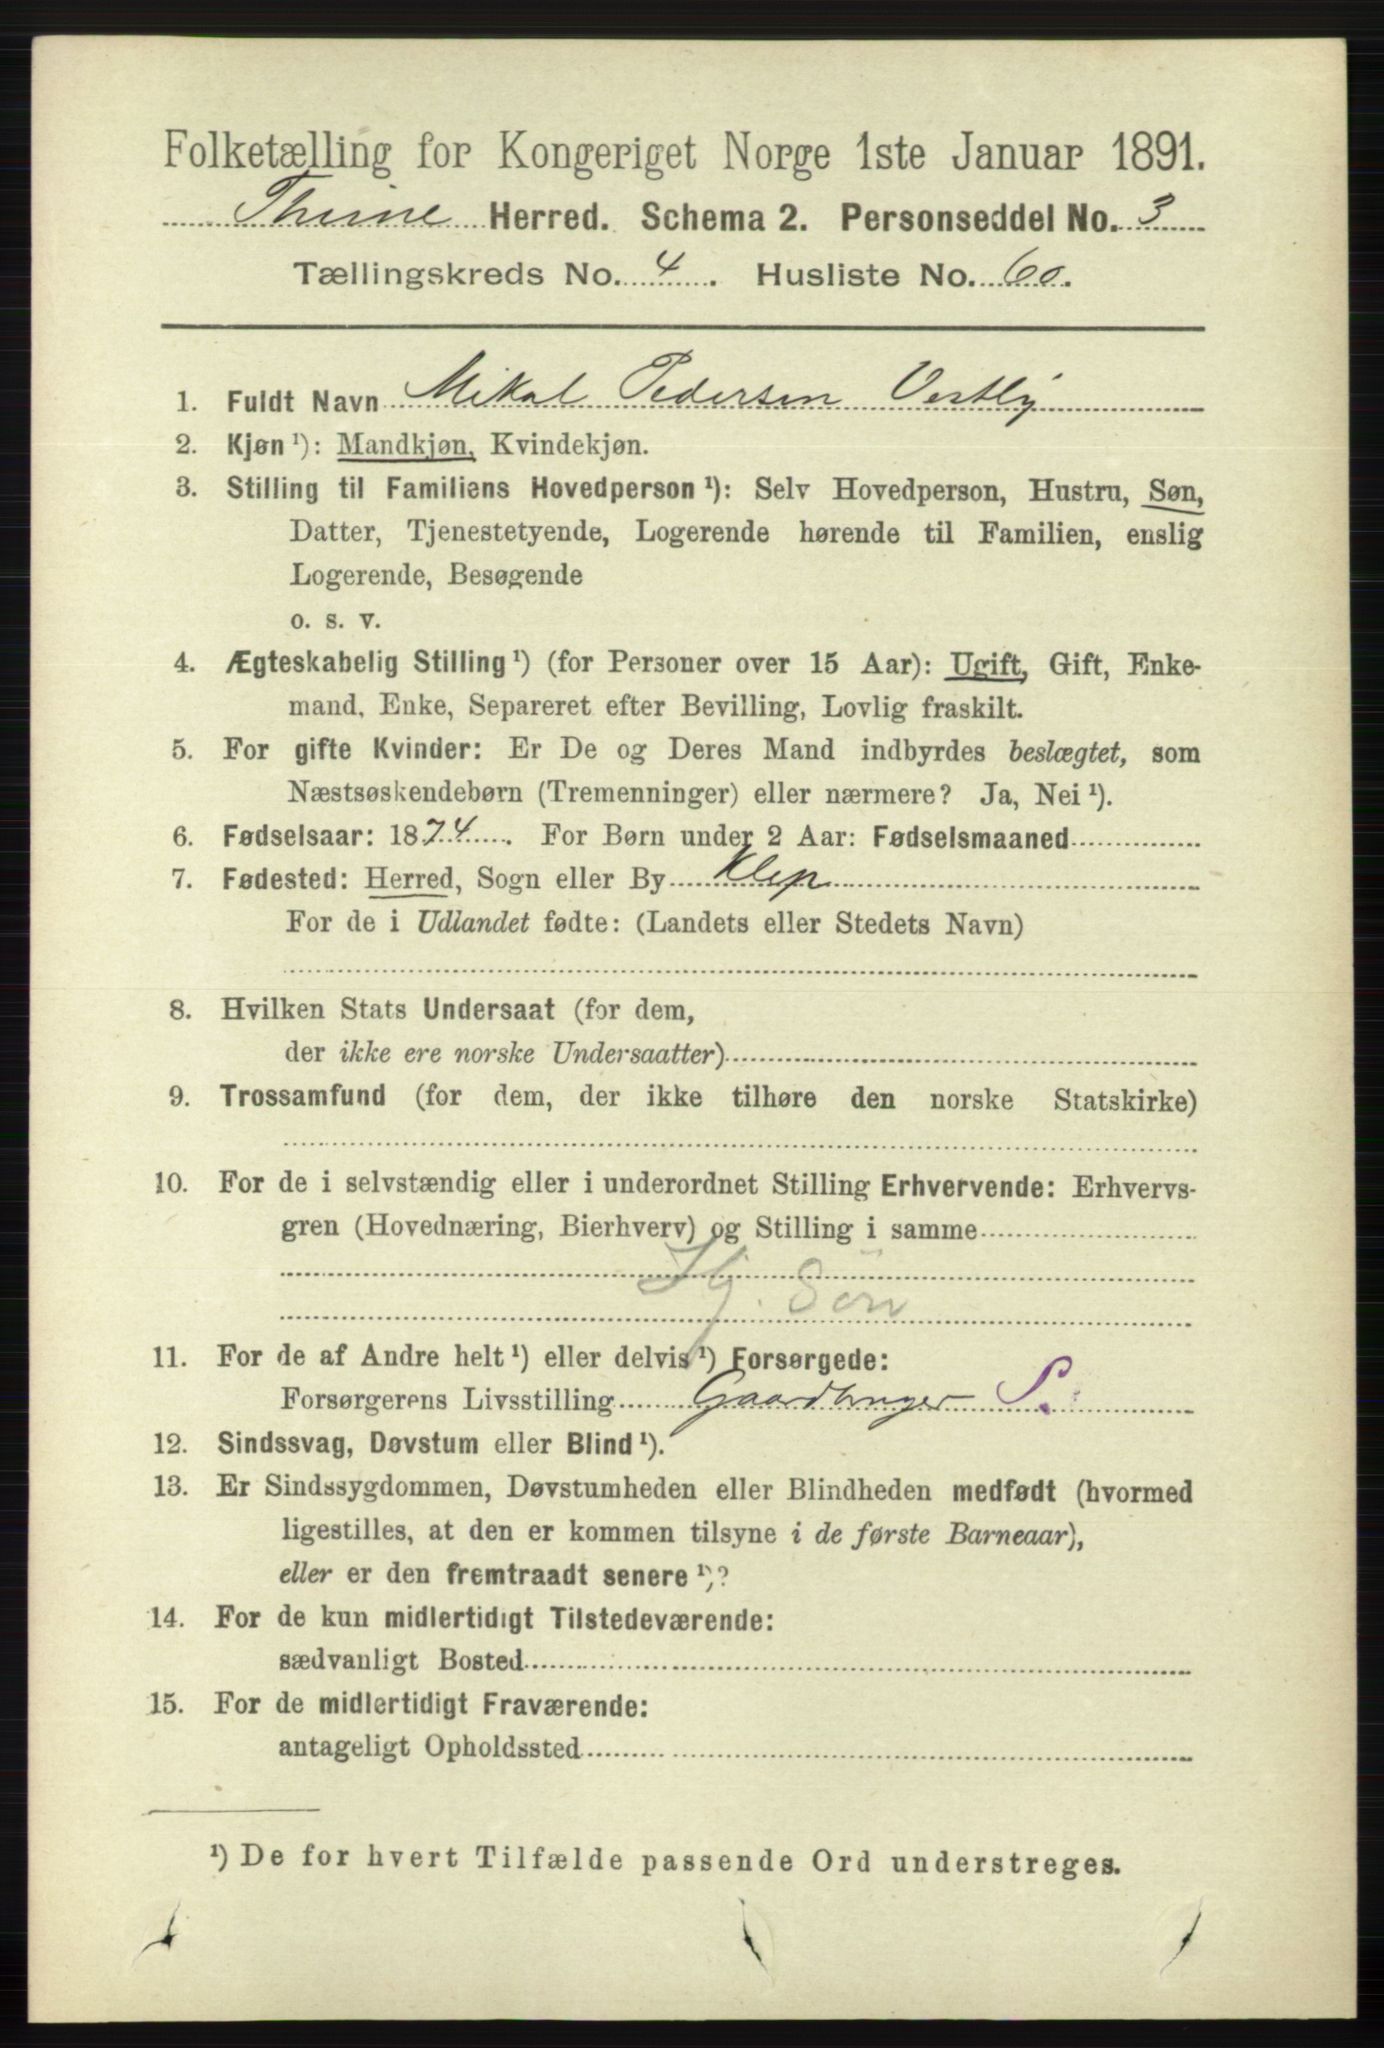 Folketælling for Kongeriget Norge 1ste Januar 1891.
Thime Herred. Schema 2. Personseddel No. 3
Tællingskreds No. 4. Husliste No. 60.
1. Fuldt Navn Mikal Pedersen Vestly
2. Kjøn ¹): Mandkjøn, Kvindekjøn.
3. Stilling til Familiens Hovedperson ¹): Selv Hovedperson, Hustru, Søn,
Datter, Tjenestetyende, Logerende hørende til Familien, enslig
Logerende, Besøgende
o. s. v.
4. Ægteskabelig Stilling ¹) (for Personer over 15 Aar): Ugift, Gift, Enke-
mand, Enke, Separeret efter Bevilling, Lovlig fraskilt.
5. For gifte Kvinder: Er De og Deres Mand indbyrdes beslægtet, som
Næstsøskendebørn (Tremenninger) eller nærmere? Ja, Nei ¹).
6. Fødselsaar: 1874. For Børn under 2 Aar: Fødselsmaaned
7. Fødested: Herred, Sogn eller By Klep
For de i Udlandet fødte: (Landets eller Stedets Navn)
8. Hvilken Stats Undersaat (for dem,
der ikke ere norske Undersaatter)
9. Trossamfund (for dem, der ikke tilhøre den norske Statskirke)
10. For de i selvstændig eller i underordnet Stilling Erhvervende: Erhvervs-
gren (Hovednæring, Bierhverv) og Stilling i samme
Hj. Søn
11. For de af Andre helt ¹) eller delvis ¹) Forsørgede:
Forsørgerens Livsstilling Gaardbruger S.
12. Sindssvag, Døvstum eller Blind ¹).
13. Er Sindssygdommen, Døvstumheden eller Blindheden medfødt (hvormed
ligestilles, at den er kommen tilsyne i de første Barneaar),
eller er den fremtraadt senere ¹)?
14. For de kun midlertidigt Tilstedeværende:
sædvanligt Bosted
15. For de midlertidigt Fraværende:
antageligt Opholdssted
¹) De for hvert Tilfælde passende Ord understreges.